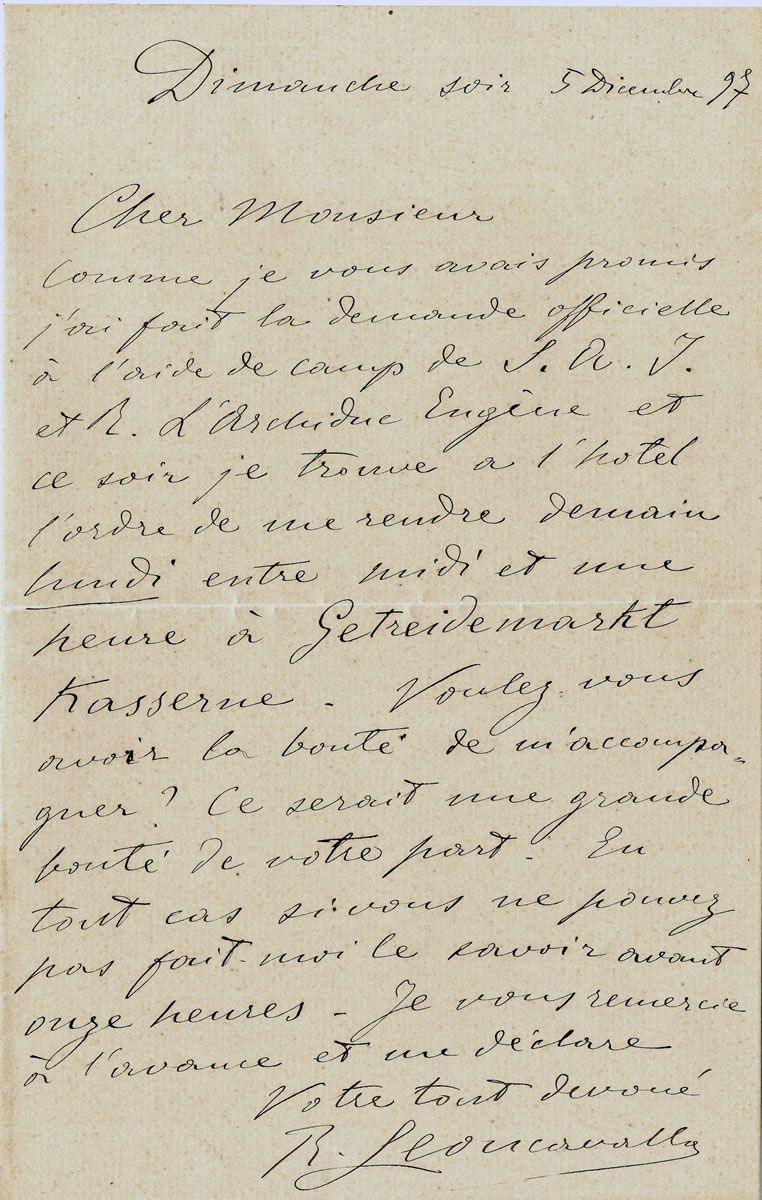 Dimanche soir 5 Dicembre 97
Cher Monsieur
Comme je vous avais promis
j'ai fait la demande officielle
à l'aide de camp de S. A. J.
et R. L'Archiduc Eugène et
ce soir je trouve a l'hotel
l'ordre de me rendre demain
lundi entre midi et une
heure à Getreidemarkt
Kasserne - Voulez vous
avoir la bonté de m'accompa=
gner? Ce serait une grande
bonté de votre part. En
tout cas si vous ne pouvez
pas fait-moi le savoir avant
onze heures - Je vous remercie
à l'avance et me déclare
Votre tout devoué
R. Leoncavallo